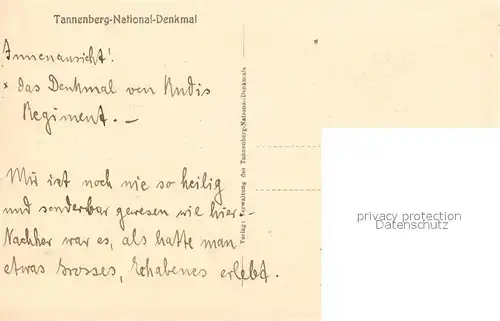 Tannenberg-National-Denkmal
Innenansicht!
x das Denkmal von Rudis
Regiment. –
Mir ist noch nie so heilig
und sonderbar gewesen wie hier –
Nachher war es, als hätte man
etwas Grosses, Erhabenes erlebt.
Verlag: Verwaltung des Tannenberg-National-Denkmals
privacy protection
www.oldthing.de